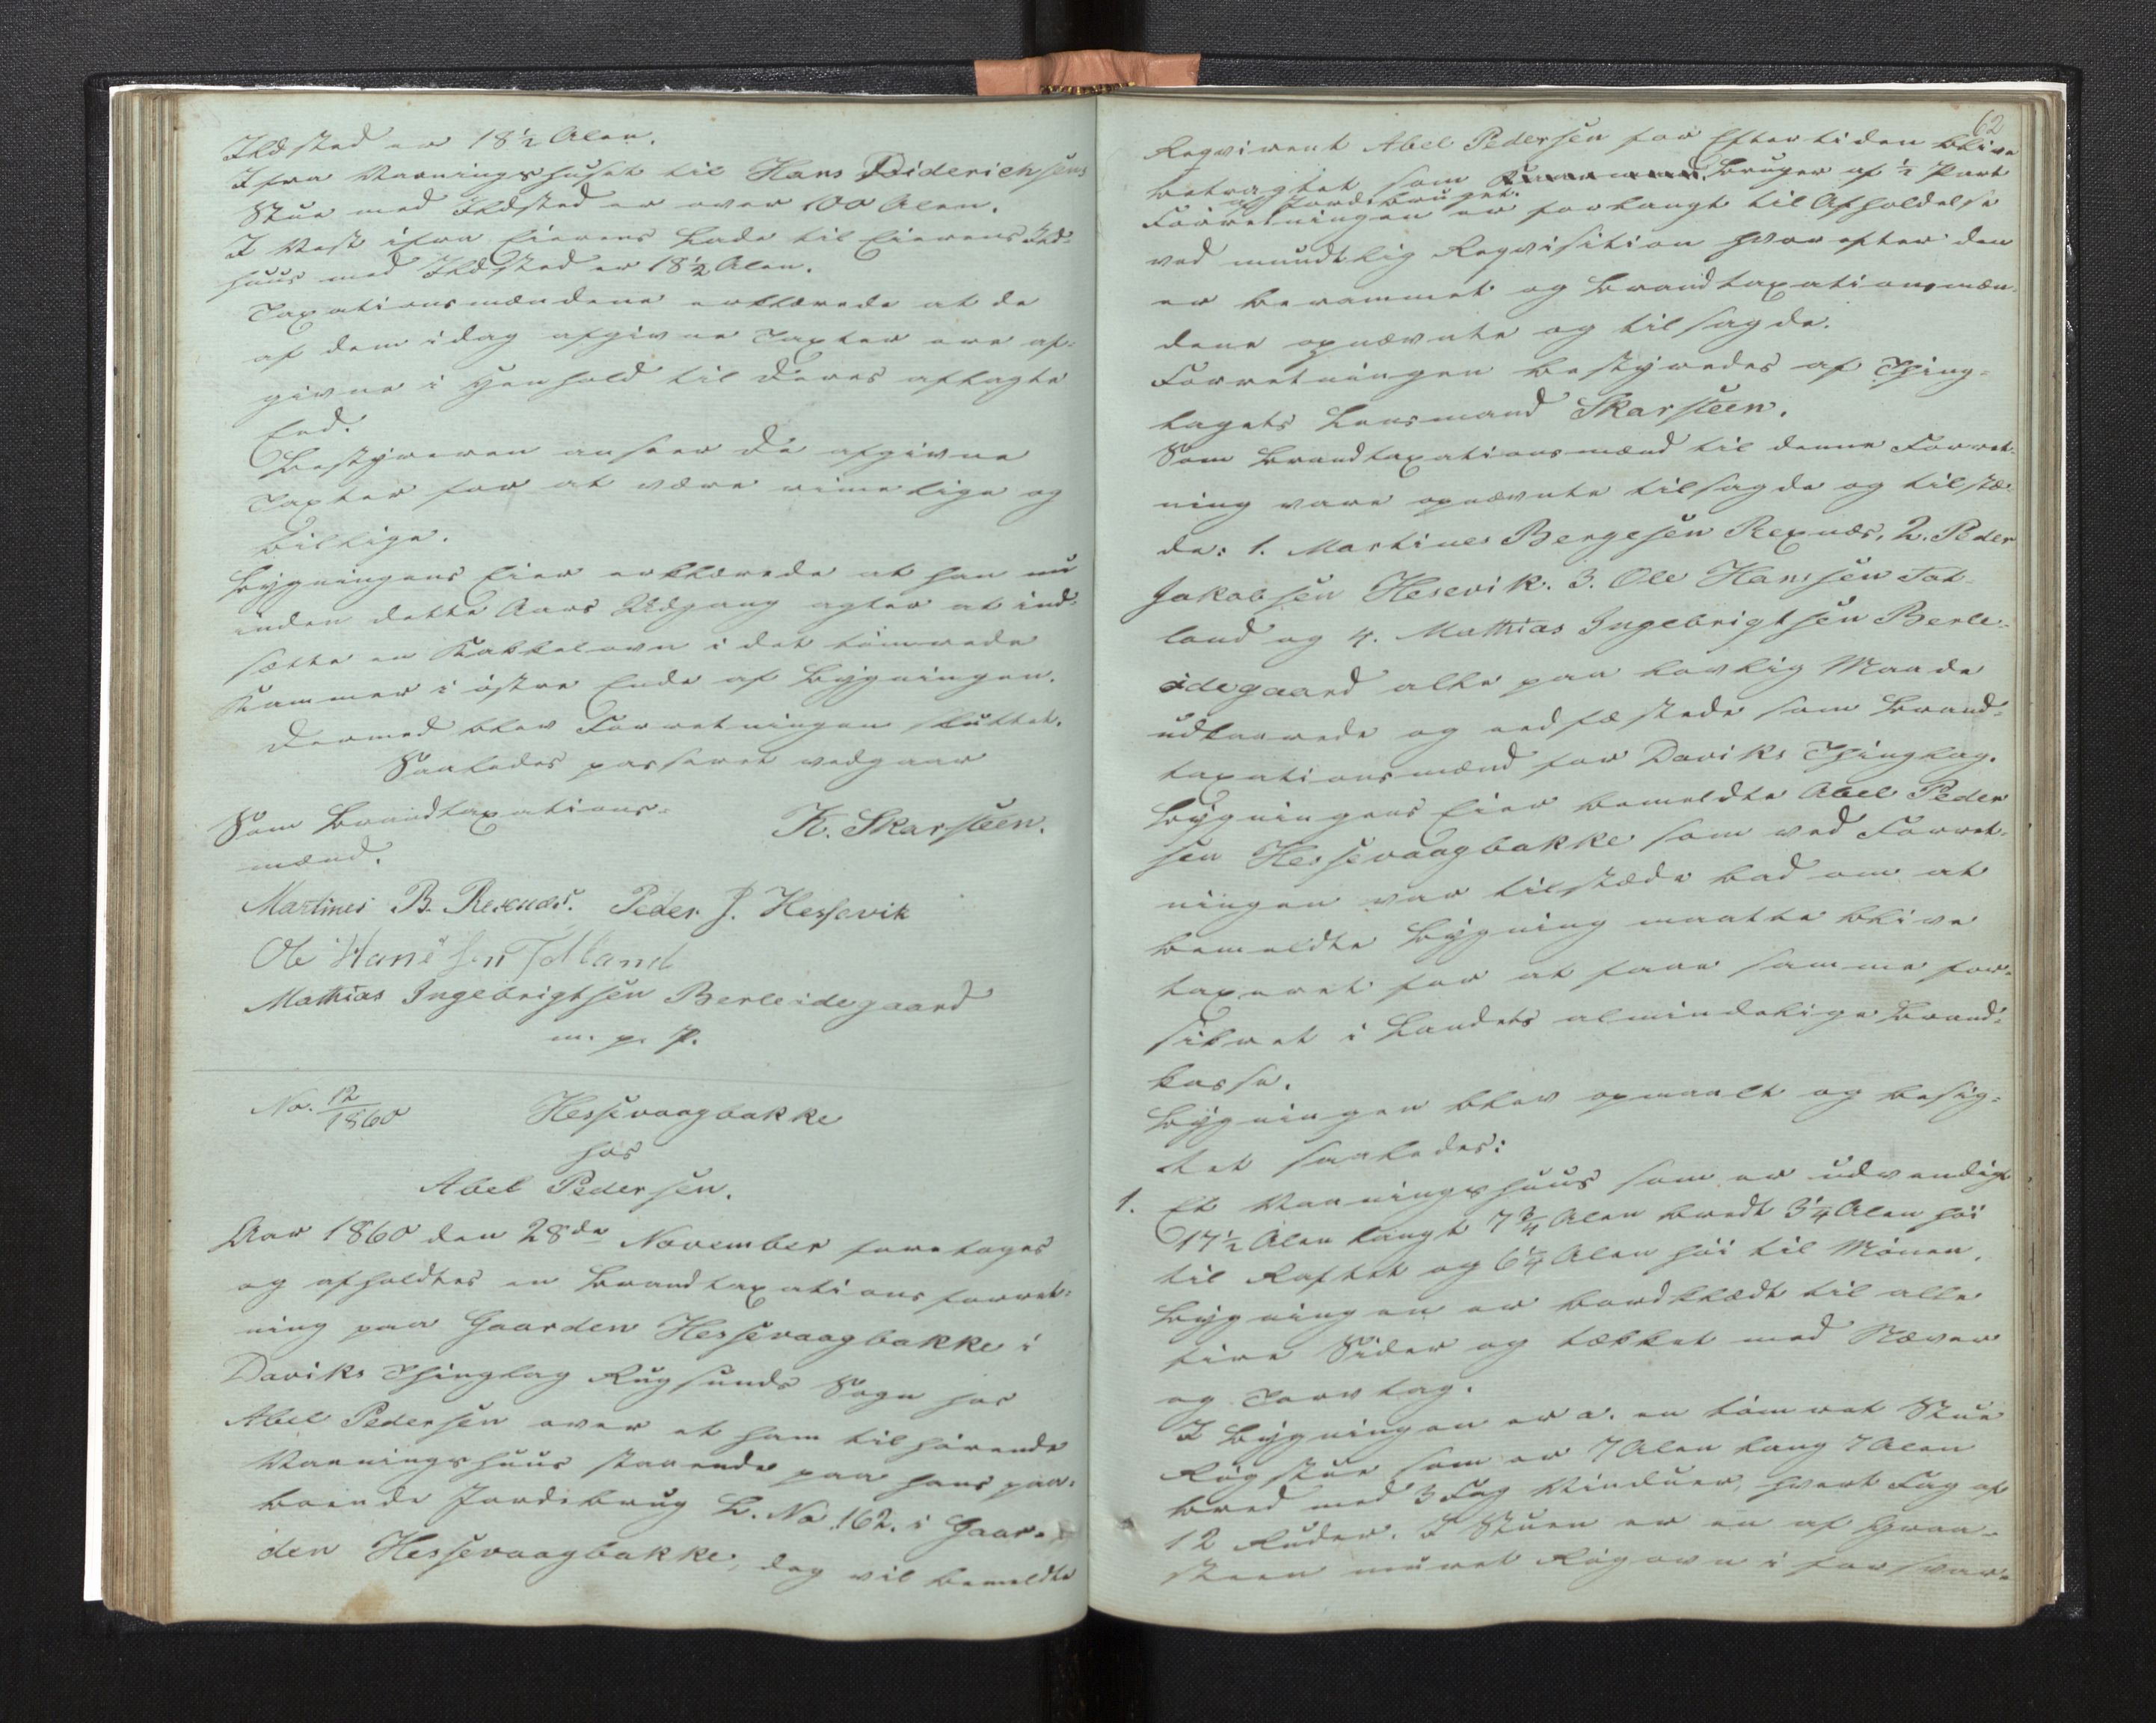 Ildsted er 18½ Alen.
Ifra Vaaningshuset til Hans Diderichsens
Stue med Ildsted er over 100 Alen.
I Vest ifra Eierens Lade til Eierens Ild-
huus med Ildsted er 18½ Alen.
Taxationsmændene erklærede at de
af dem idag afgivne Taxter ere af-
givne i Henhold til deres aflagte
Eed.
Bestyreren anseer de afgivne
Taxter for at være rimelige og
billige.
Bygningens Eier erklærede at han nu
inden dette Aars Udgang agter at ind-
sætte en Kakkelovn i det tömrede
Kammer i östre Ende af Bygningen.
Dermed blev Forretningen sluttet.
Saaledes passeret vedgaar
Som Brandtaxations-
mænd.
K. Skarsteen.
Martines B. Rexnæs. Peder J. Hessevik
Ole Hansen Totland
Mathias Ingebrigtsen Berleödegaard
m. p. P.
No. 12/1860 Hessevaagbakke
hos
Abel Pedersen.
Aar 1860 den 28de November foretoges
og afholdtes en Brandtaxationsforret-
ning paa Gaarden Hessevaagbakke i
Daviks Thinglag Rugsunds Sogn hos
Abel Pedersen over et ham tilhörende
Vaaningshuus staaende paa hans paa-
boende Jordebrug L. No 162. i Gaar-
den Hessevaagbakke, dog vil bemeldte
62
Reqvirent Abel Pedersen for Eftertiden blive
betragtet som Bruger af ½ Part
af Jordebruget.
Forretningen er forlangt til Afholdelse
ved mundtlig Reqvisition hvorefter den
er berammet og Brandtaxationsmæn-
dene opnævnte og tilsagde.
Forretningen bestyredes af Thing-
lagets Lensmand Skarsteen.
Som Brandtaxationsmænd til denne Forret-
ning vare opnævnte tilsagde og tilstæ-
de: 1. Martines Bergesen Rexnæs, 2. Peder
Jakobsen Hesevik. 3. Ole Hanssen Tot-
land og 4. Mathias Ingebrigtsen Berle-
ödegaard alle paa lovlig Maade
udkaarede og edfæstede som Brand-
taxationsmænd for Daviks Thinglag.
Bygningens Eier bemeldte Abel Peder
sen Hessevaagbakke som ved Forret-
ningen var tilstæde bad om at
bemeldte Bygning maatte blive
taxeret for at faae samme for-
sikret i Landets almindelige Brand-
kasse.
Bygningen blev opmaalt og besig-
tet saaledes:
1. Et Vaaningshuus som er udvendigt
17½ Alen langt 7¾ Alen bredt 3¼ Alen höi
til Raftet og 6¼ Alen höi til Mönen.
Bygningen er bordklædt til alle
fire Sider og tækket med Næver
og Torvtag.
I Bygningen er a. en tömret Stue
Rögstue som er 7 Alen lang 7 Alen
bred med 3 Fag Vinduer, hvert Fag af
12 Ruder. I Stuen er en af Graa-
steen muret Rögovn i forsvar-